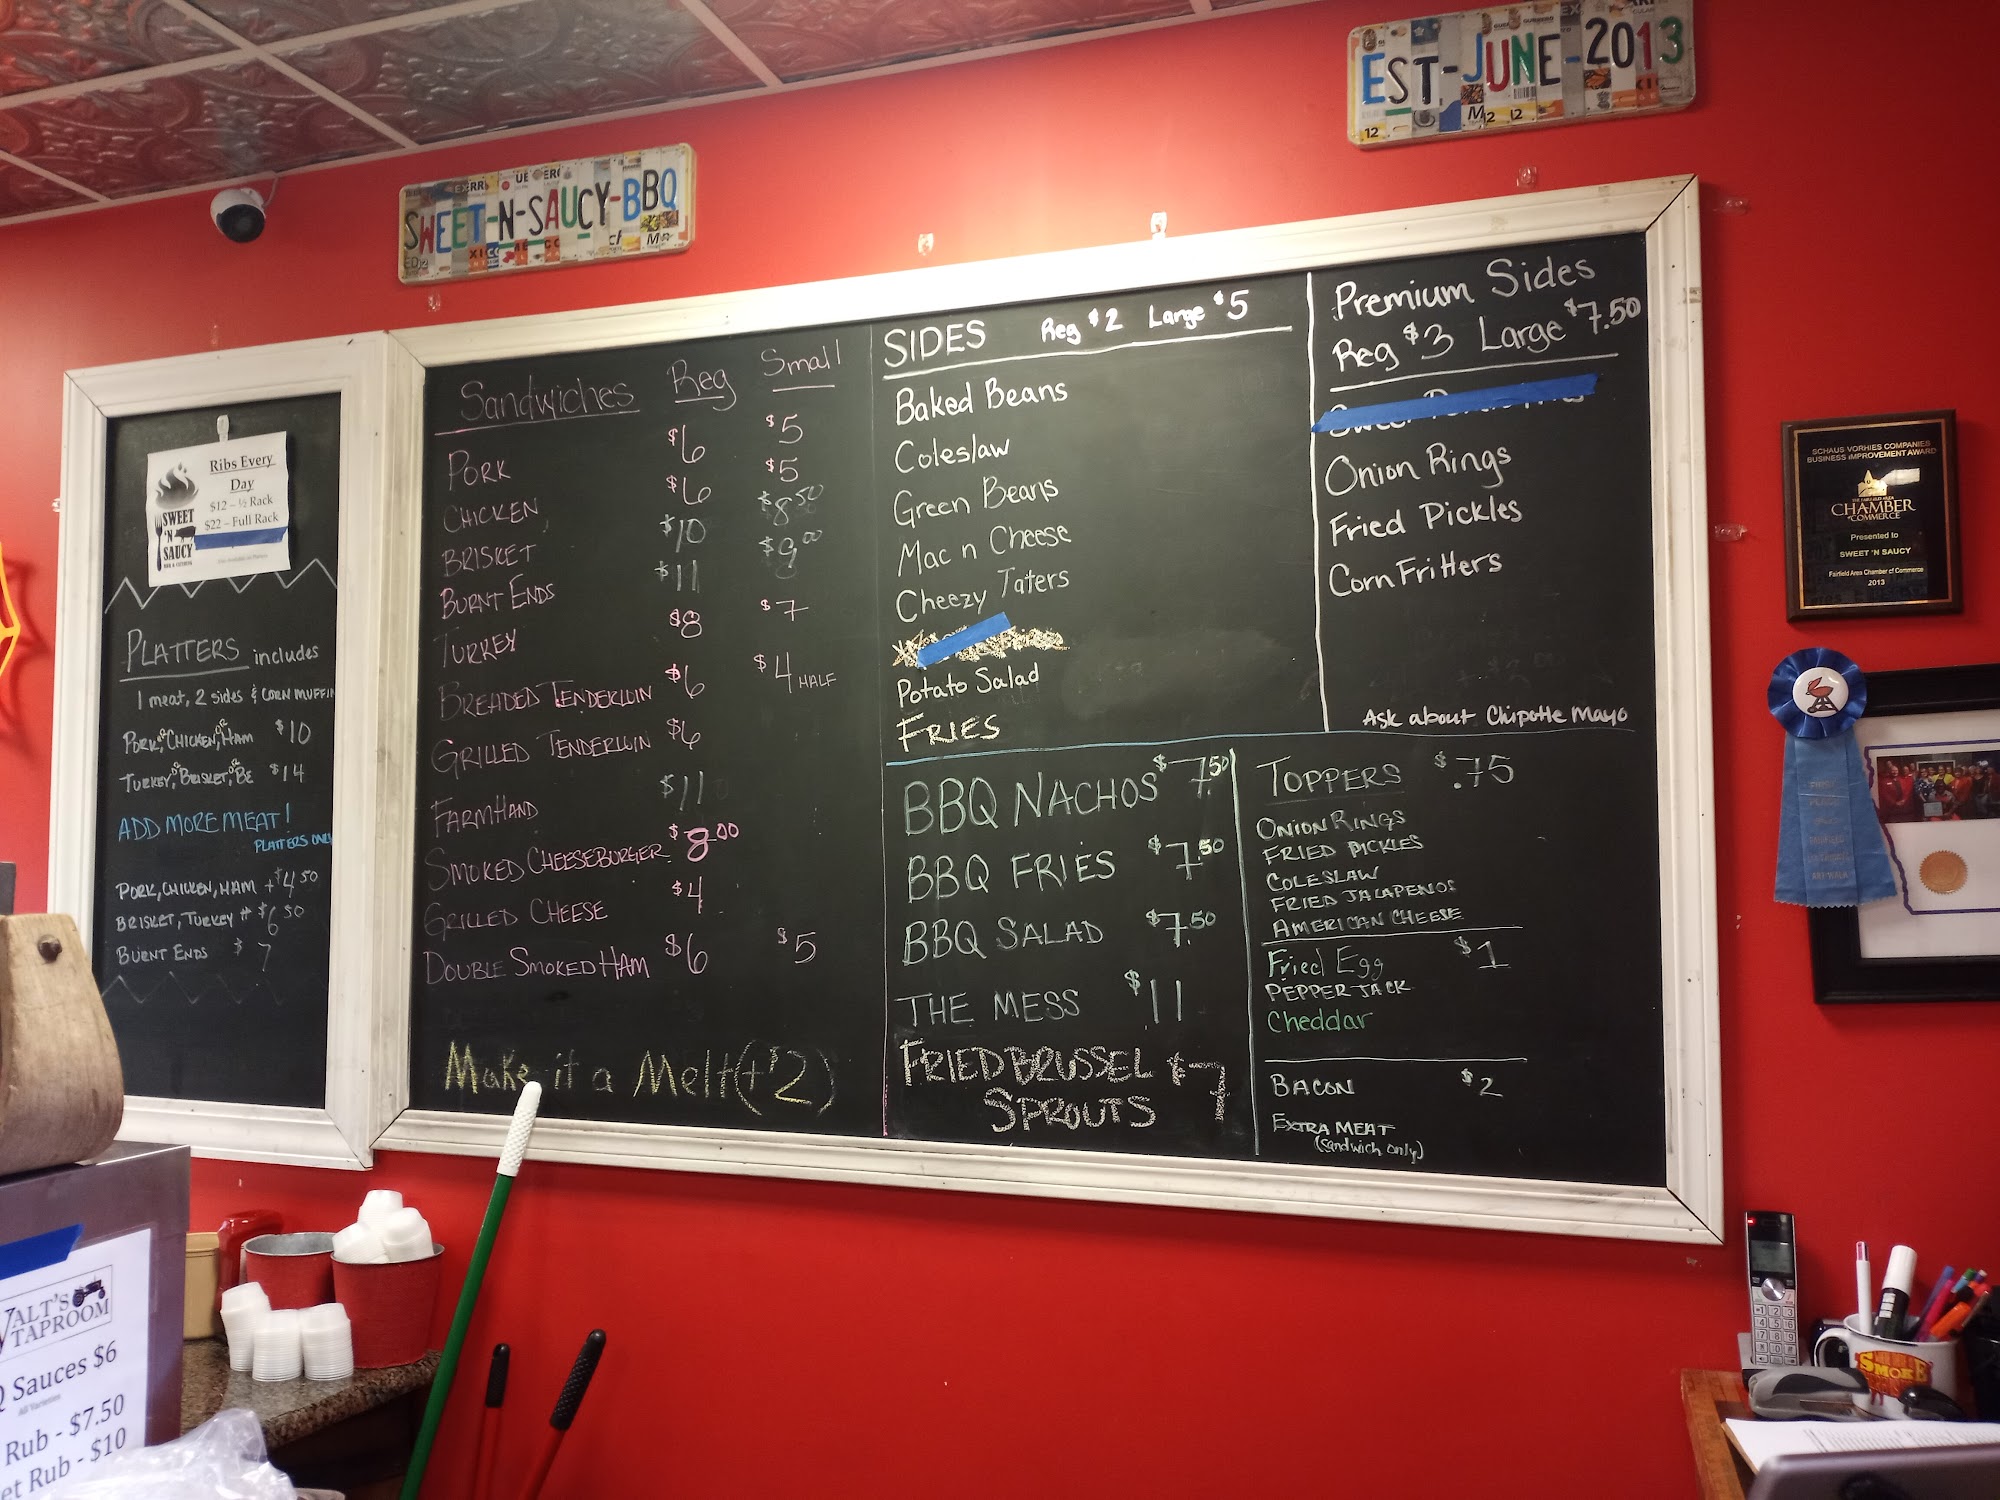 SWEET-N-SAUCY-BBQ
EST-JUNE-2013
Ribs Every
Day
$12 – ½ Rack
$22 – Full Rack
SWEET
'N
SAUCY
BBQ & CATERING
PLATTERS includes
1 meat, 2 sides & CORN MUFFIN
PORK, or CHICKEN, or HAM $10
TURKEY, or BRISKET, or BE $14
ADD MORE MEAT!
PLATTERS ONLY
PORK, CHICKEN, HAM +$4.50
BRISKET, TURKEY + $6.50
BURNT ENDS $7
Sandwiches Reg Small
PORK $6 $5
CHICKEN $6 $5
BRISKET $10 $8.50
BURNT ENDS $11 $9.00
TURKEY $8 $7
BREADED TENDERLOIN $6 $4 HALF
GRILLED TENDERLOIN $6
FARMHAND $11
SMOKED CHEESEBURGER $8.00
GRILLED CHEESE $4
DOUBLE SMOKED HAM $6 $5
Make it a Melt (+$2)
SIDES Reg $2 Large $5
Baked Beans
Coleslaw
Green Beans
Mac n Cheese
Cheezy Taters
Potato Salad
FRIES
Premium Sides
Reg $3 Large $7.50
Onion Rings
Fried Pickles
Corn Fritters
Ask about Chipotle Mayo
BBQ NACHOS $7.50
BBQ FRIES $7.50
BBQ SALAD $7.50
THE MESS $11
FRIED BRUSSEL $7
SPROUTS
TOPPERS $.75
ONION RINGS
FRIED PICKLES
COLESLAW
FRIED JALAPENOS
AMERICAN CHEESE
Fried Egg $1
PEPPER JACK
Cheddar
BACON $2
EXTRA MEAT
(sandwich only)
SCHAUS VORHIES COMPANIES
BUSINESS IMPROVEMENT AWARD
THE FAIRFIELD AREA
CHAMBER
of COMMERCE
Presented to
SWEET 'N SAUCY
Fairfield Area Chamber of Commerce
2013
FIRST
PLACE
WALT'S
TAPROOM
Q Sauces $6
All Varieties
Rub - $7.50
et Rub - $10
SMOKE